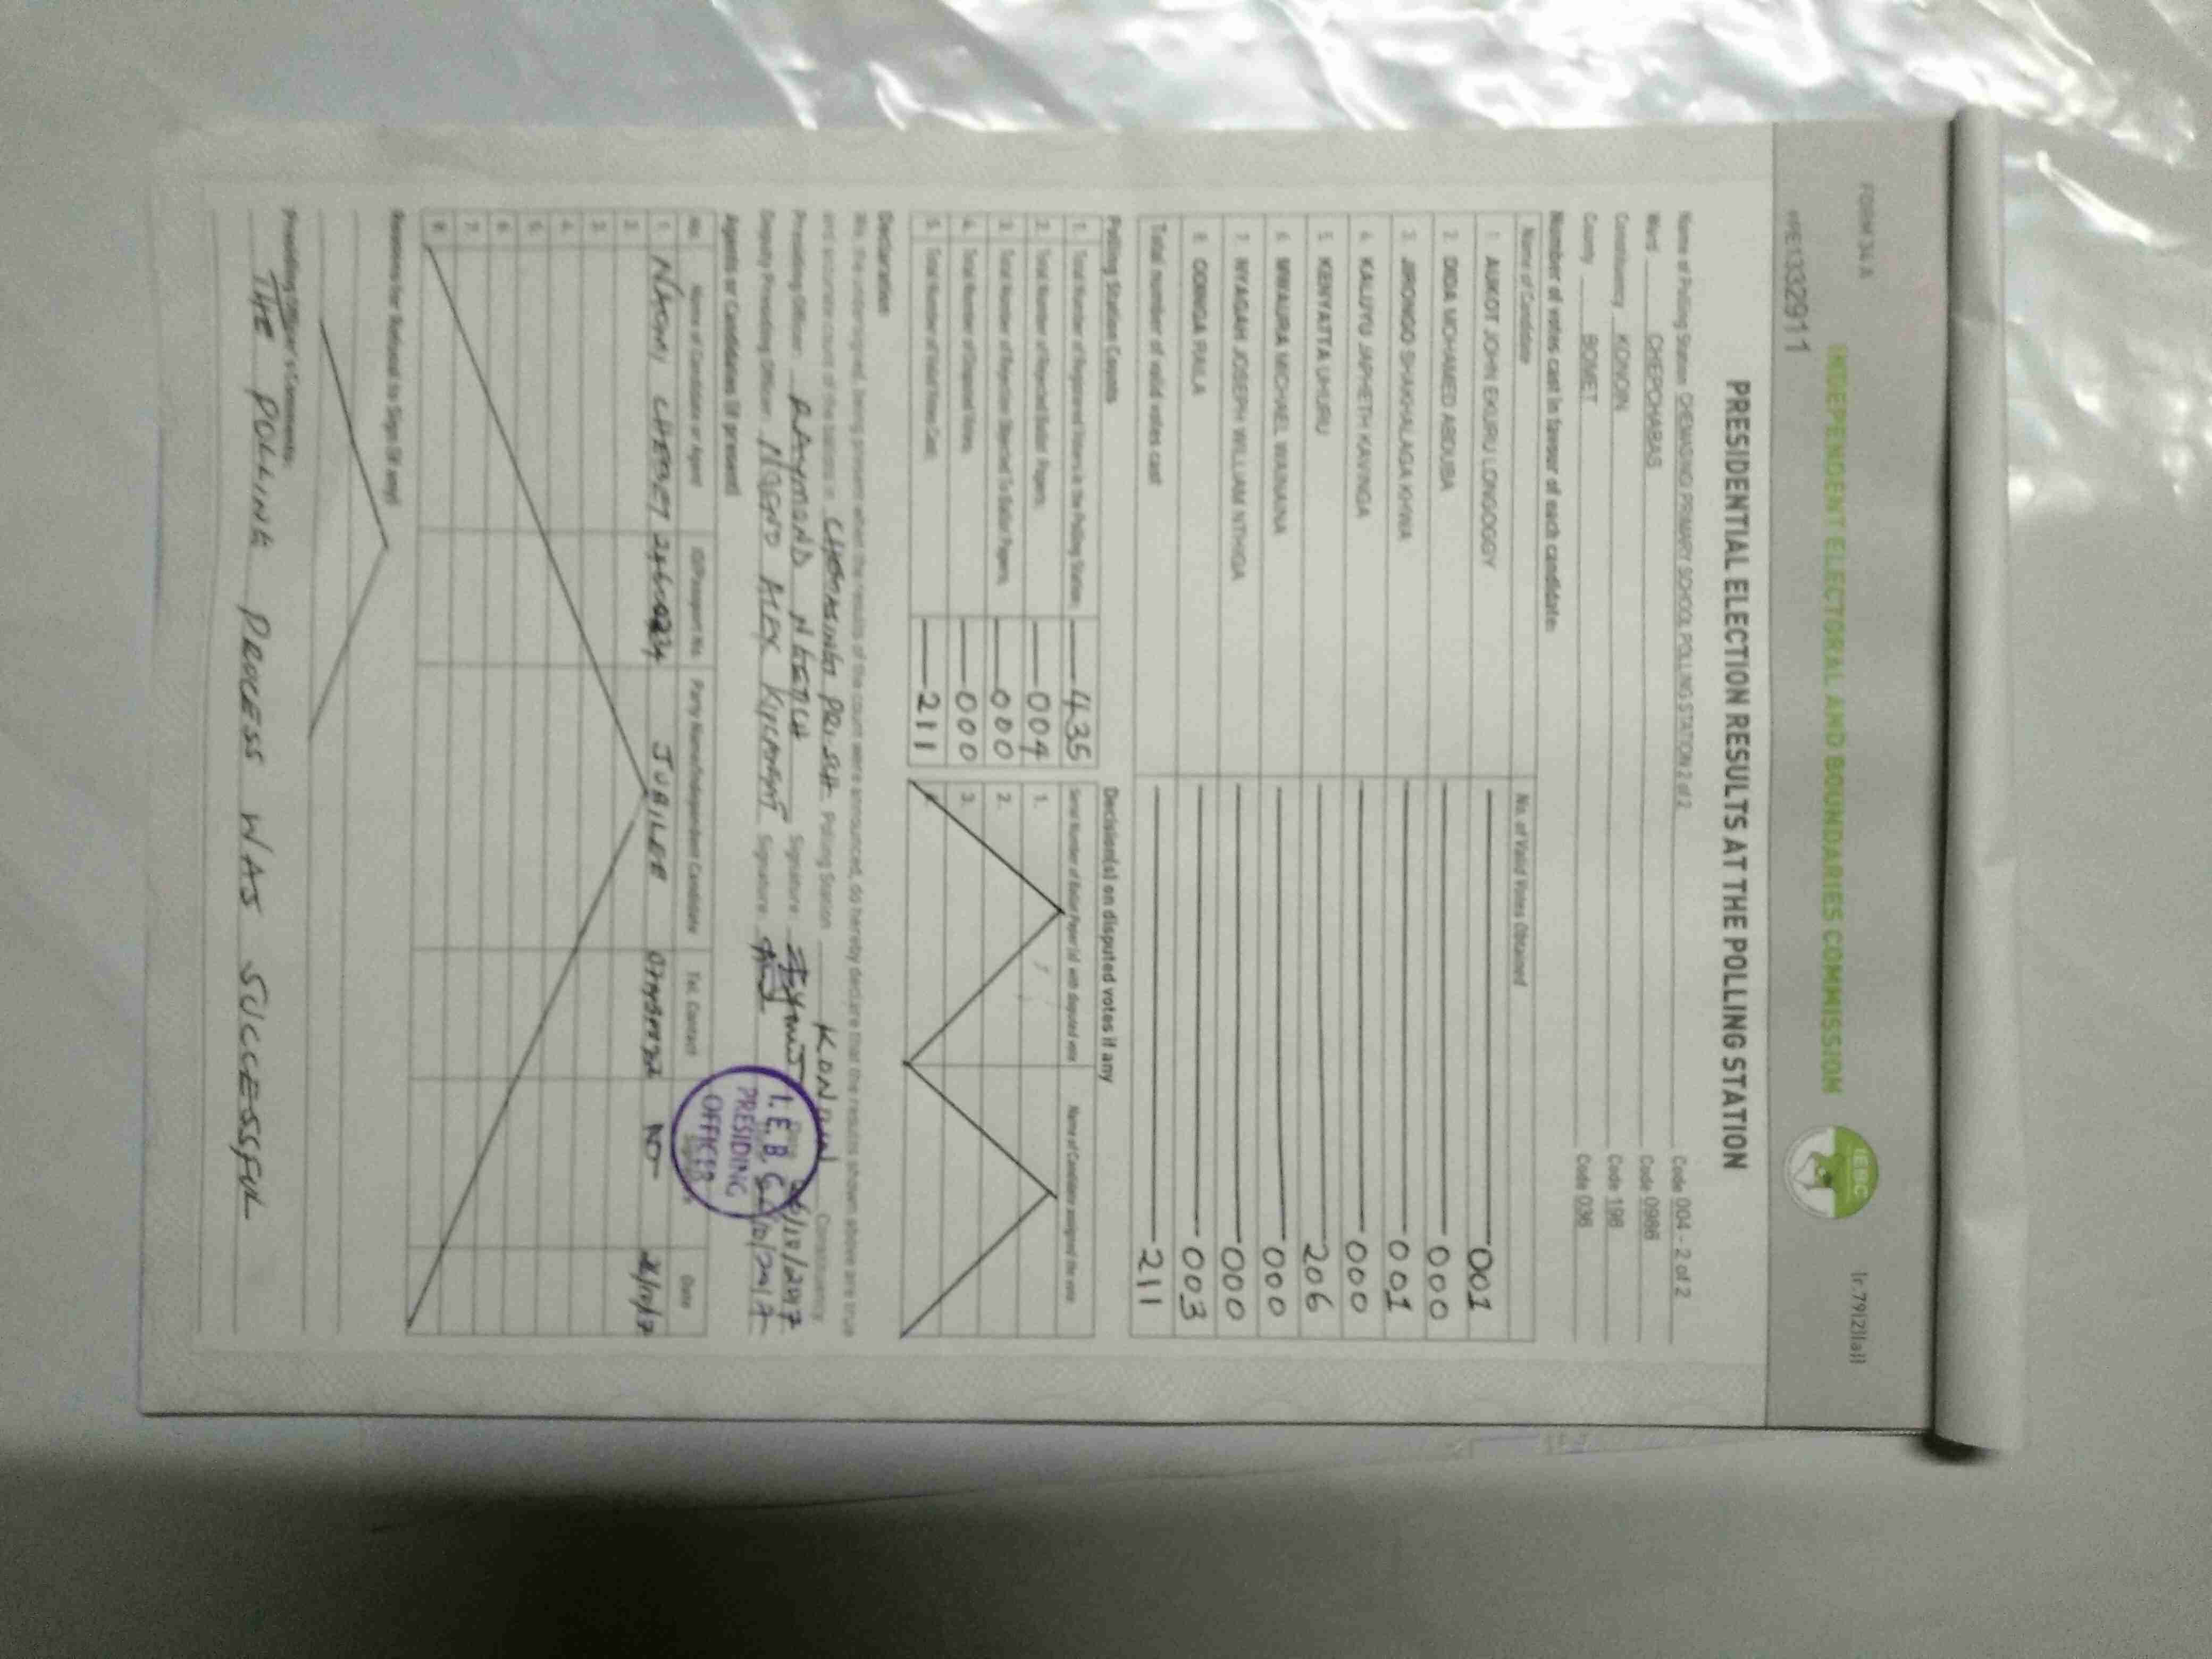 FORM 34 A
INDEPENDENT ELECTORAL AND BOUNDARIES COMMISSION
IEBC
PRESIDENTIAL ELECTION RESULTS AT THE POLLING STATION
Name of Polling Station CHEMASINGI PRIMARY SCHOOL POLLING STATION 2 of 2 Code 004 - 2 of 2
Ward CHEPCHABAS Code 0986
Constituency KONOIN Code 198
County BOMET Code 036
Number of votes cast in favour of each candidate:
Name of Candidate No. of Valid Votes Obtained
1. AUKOT JOHN EKURU LONGOGGY 001
2. DIDA MOHAMED ABDUBA 000
3. JIRONGO SHAKHALAGA KHWA 001
4. KALUYU JAPHETH KAVINGA 000
5. KENYATTA UHURU 206
6. MWAURA MICHAEL WAINAINA 000
7. NYAGAH JOSEPH WILLIAM NTHIGA 000
8. ODINGA RAILA 003
Total number of valid votes cast 211
Polling Station Counts
1. Total Number of Registered Voters in the Polling Station 435
2. Total Number of Rejected Ballot Papers 004
3. Total Number of Rejection Objected To Ballot Papers 000
4. Total Number of Disputed Votes 000
5. Total Number of Valid Votes Cast 211
Decision(s) on disputed votes if any
Serial Number of Ballot Paper(s) with disputed vote Name of Candidate assigned the vote
1.
2.
3.
Declaration
We, the undersigned, being present when the results of the count were announced, do hereby declare that the results shown above are true
and accurate count of the ballots in Polling Station KONOIN Constituency
Presiding Officer: RAYMOND NGETICH Signature 26/10/2017
Deputy Presiding Officer: ALEX Signature
I.E.B.C
PRESIDING
OFFICER
Agents or Candidates (if present)
No. Name of Candidate or Agent ID/Passport No. Party Name/Independent Candidate Tel. Contact Date
1. CHEBET JUBILEE 26/10/17
2.
3.
4.
5.
6.
7.
8.
Reasons for Refusal to Sign (if any)
Presiding Officer's Comments:
THE POLLING PROCESS WAS SUCCESSFUL